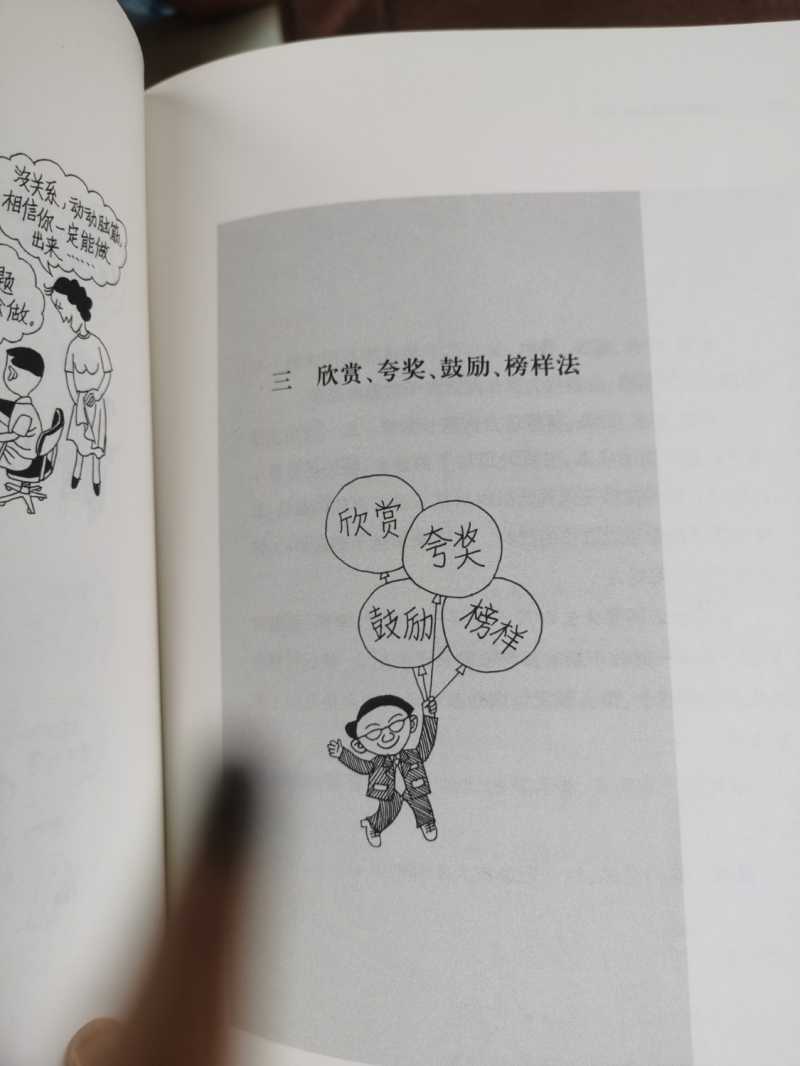 没关系，动动脑筋，
相信你一定能做
出来……
题
做。
三 欣赏、夸奖、鼓励、榜样法
欣赏
夸奖
鼓励
榜样